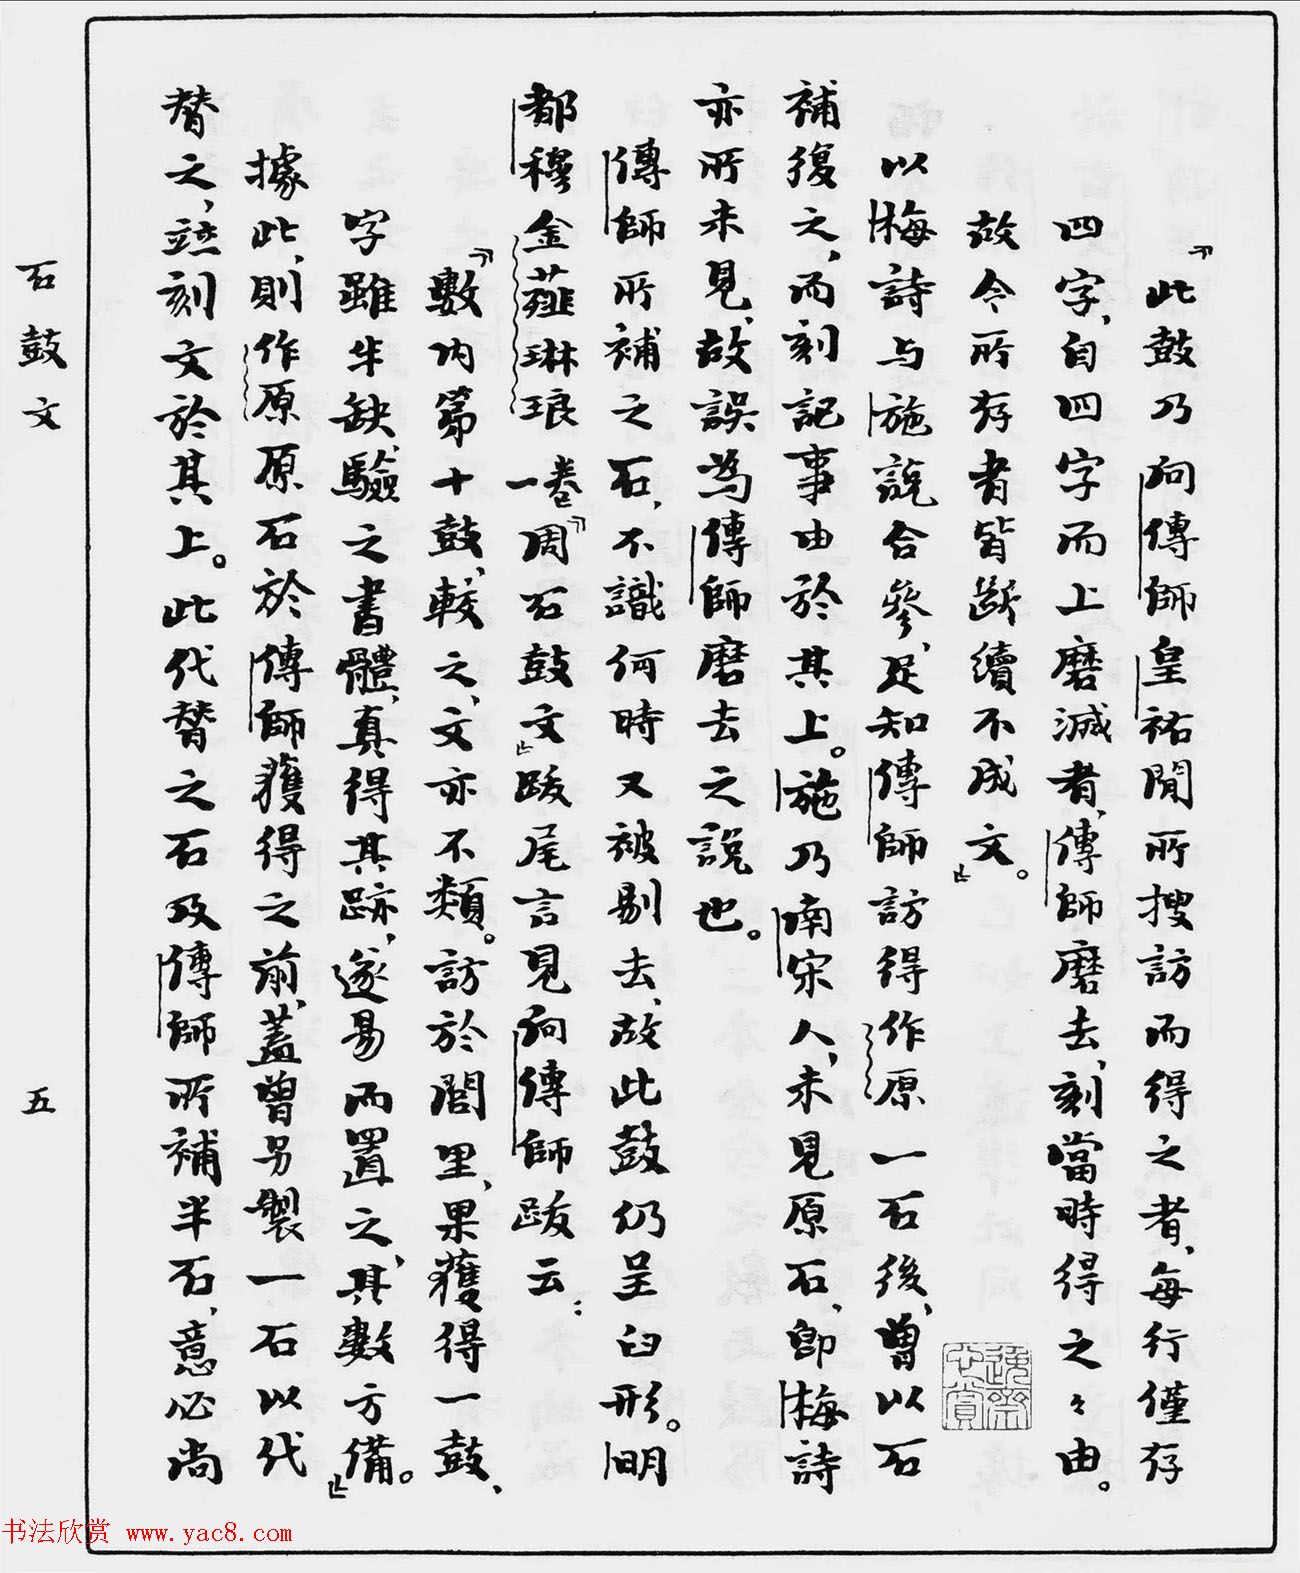 『此鼓乃向傳師皇祐間所搜訪而得之者，每行僅存
四字，自四字而上磨滅者，傳師磨去，刻當時得之々由。
故今所存者皆斷續不成文。』
以梅詩与施說合參，足知傳師訪得作原一石後，曾以石
補復之，而刻記事由於其上。施乃南宋人，未見原石，即梅詩
亦所未見，故誤為傳師磨去之說也。
傳師所補之石，不識何時又被剔去，故此鼓仍呈臼形。明
都穆金薤琳琅一卷『周石鼓文』跋尾言見向傳師跋云：
『數内第十鼓，較之，文亦不類。訪於閭里，果獲得一鼓，
字雖半缺，驗之書體，真得其跡，遂易而置之，其數方備。』
據此，則作原原石於傳師獲得之前，蓋曾另製一石以代
替之，竝刻文於其上。此代替之石及傳師所補半石，意必尚
石鼓文
五
书法欣赏 www.yac8.com